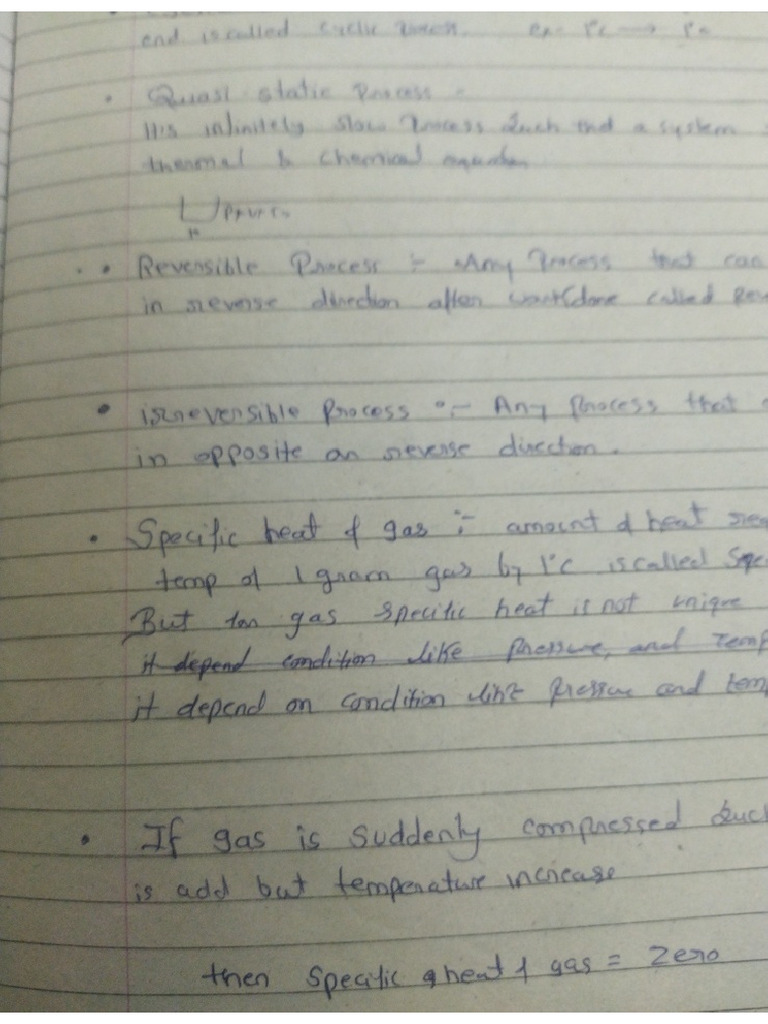 end is called cyclic
• Quasi static Process :-
It's infinitely slow Process Such that a system
thermal & chemical
• Reversible Process :- Any Process that can
in reverse direction after workdone called Rev
• irreversible Process :- Any process that
in opposite or reverse direction.
• Specific heat of gas :- amount of heat req
temp of 1 gram gas by 1°C is called Spe
But for gas specific heat is not unique
it depend condition like pressure, and Temp
it depend on condition like pressure and temp
• If gas is suddenly compressed such
is add but temperature increase
then Specific heat of gas = Zero